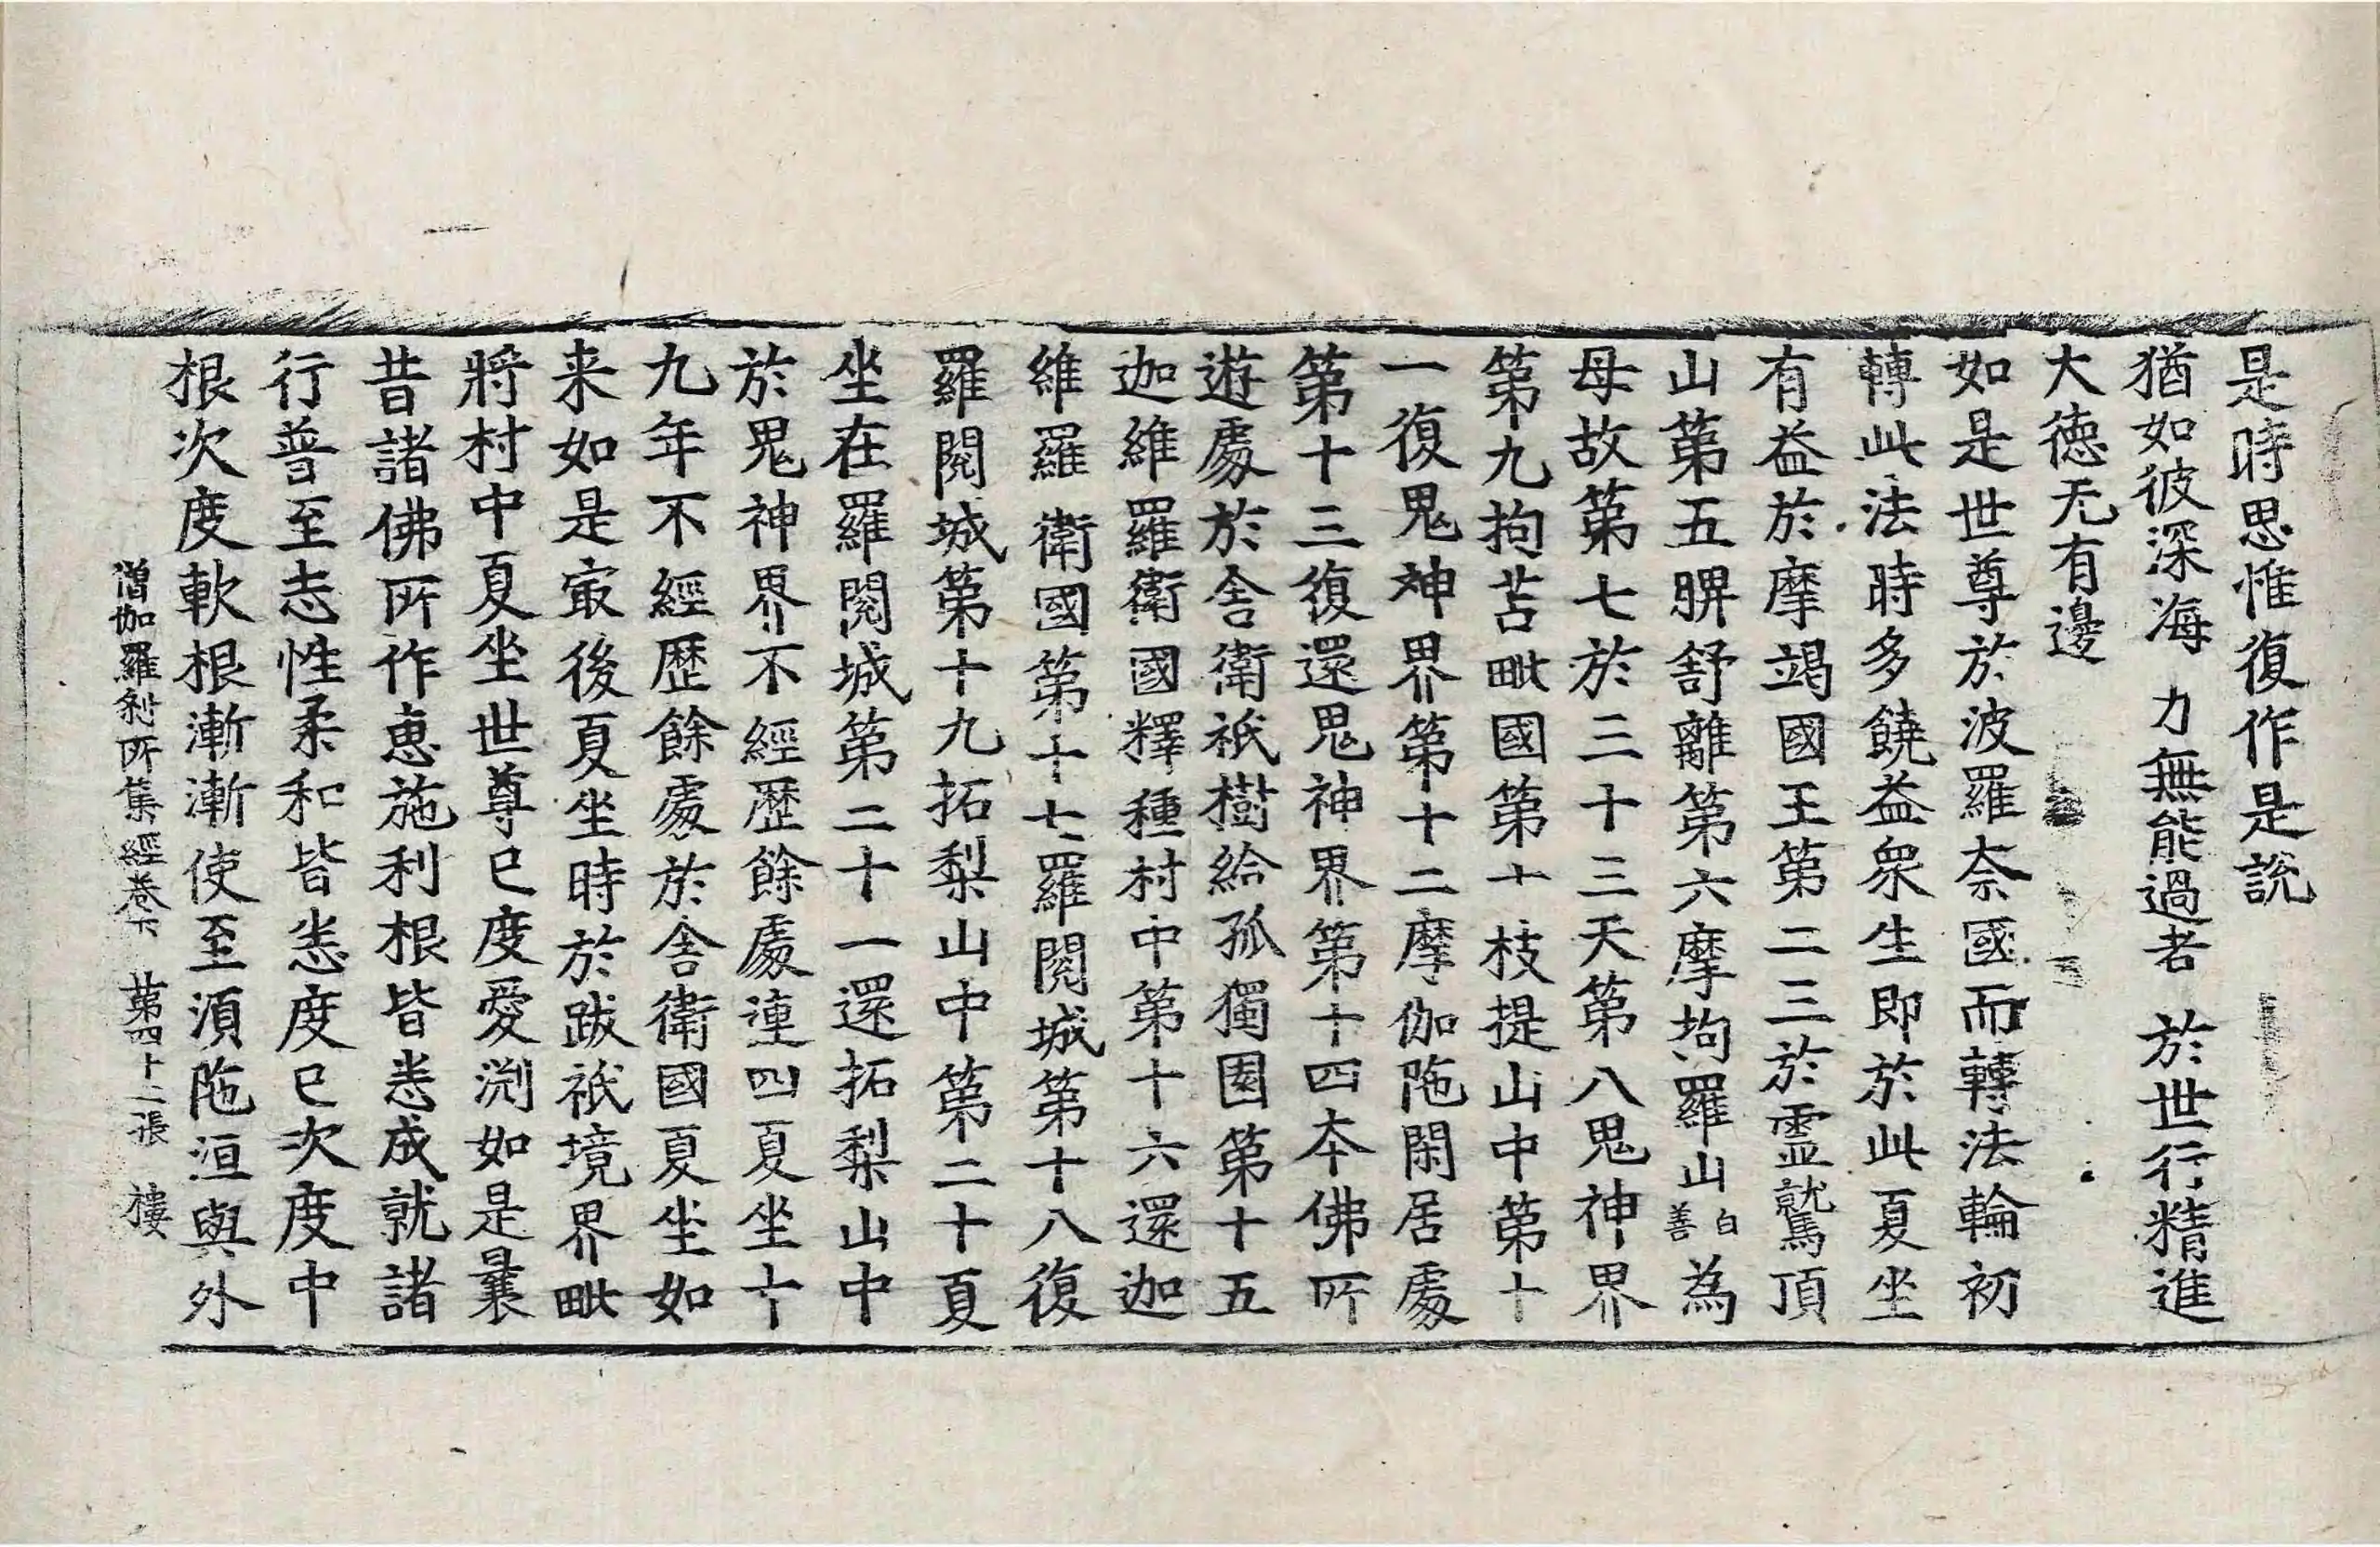 是時思惟復作是說
猶如彼深海　力無能過者　於世行精進
大德无有邊
如是世尊於波羅奈國而轉法輪初
轉此法時多饒益衆生即於此夏坐
有益於摩竭國王第二三於靈鷲頂
山第五脾舒離第六摩拘羅山白善為
母故第七於三十三天第八鬼神界
第九拘苫毗國第十枝提山中第十
一復鬼神界第十二摩伽陁閑居處
第十三復還鬼神界第十四本佛所
遊處於舍衛祇樹給孤獨園第十五
迦維羅衛國釋種村中第十六還迦
維羅衛國第十七羅閱城第十八復
羅閱城第十九拓梨山中第二十夏
坐在羅閱城第二十一還拓梨山中
於鬼神界不經歷餘處連四夏坐十
九年不經歷餘處於舍衛國夏坐如
来如是㝡後夏坐時於跋祇境界毗
將村中夏坐世尊已度愛渕如是曩
昔諸佛所作惠施利根皆悉成就諸
行普至志性柔和皆悉度已次度中
根次度軟根漸漸使至湏陁洹與外
僧伽羅刹所集經卷下　第四十二張　樓